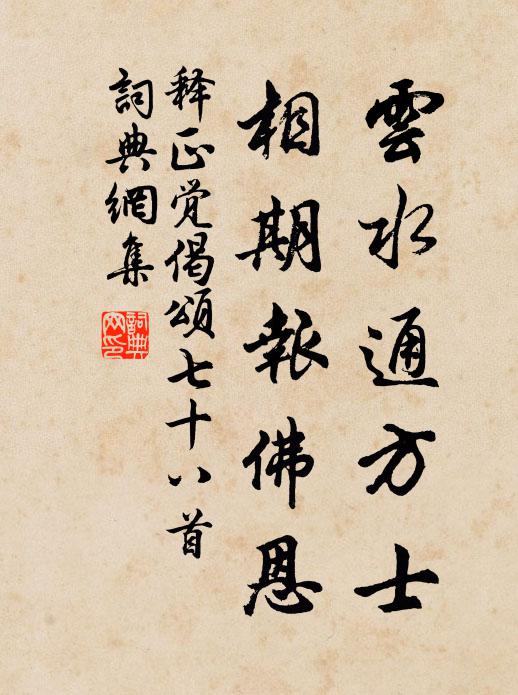 雲水通方士
相期報佛恩
释正覚偈頌七十八首
詞典網集
詞典網印